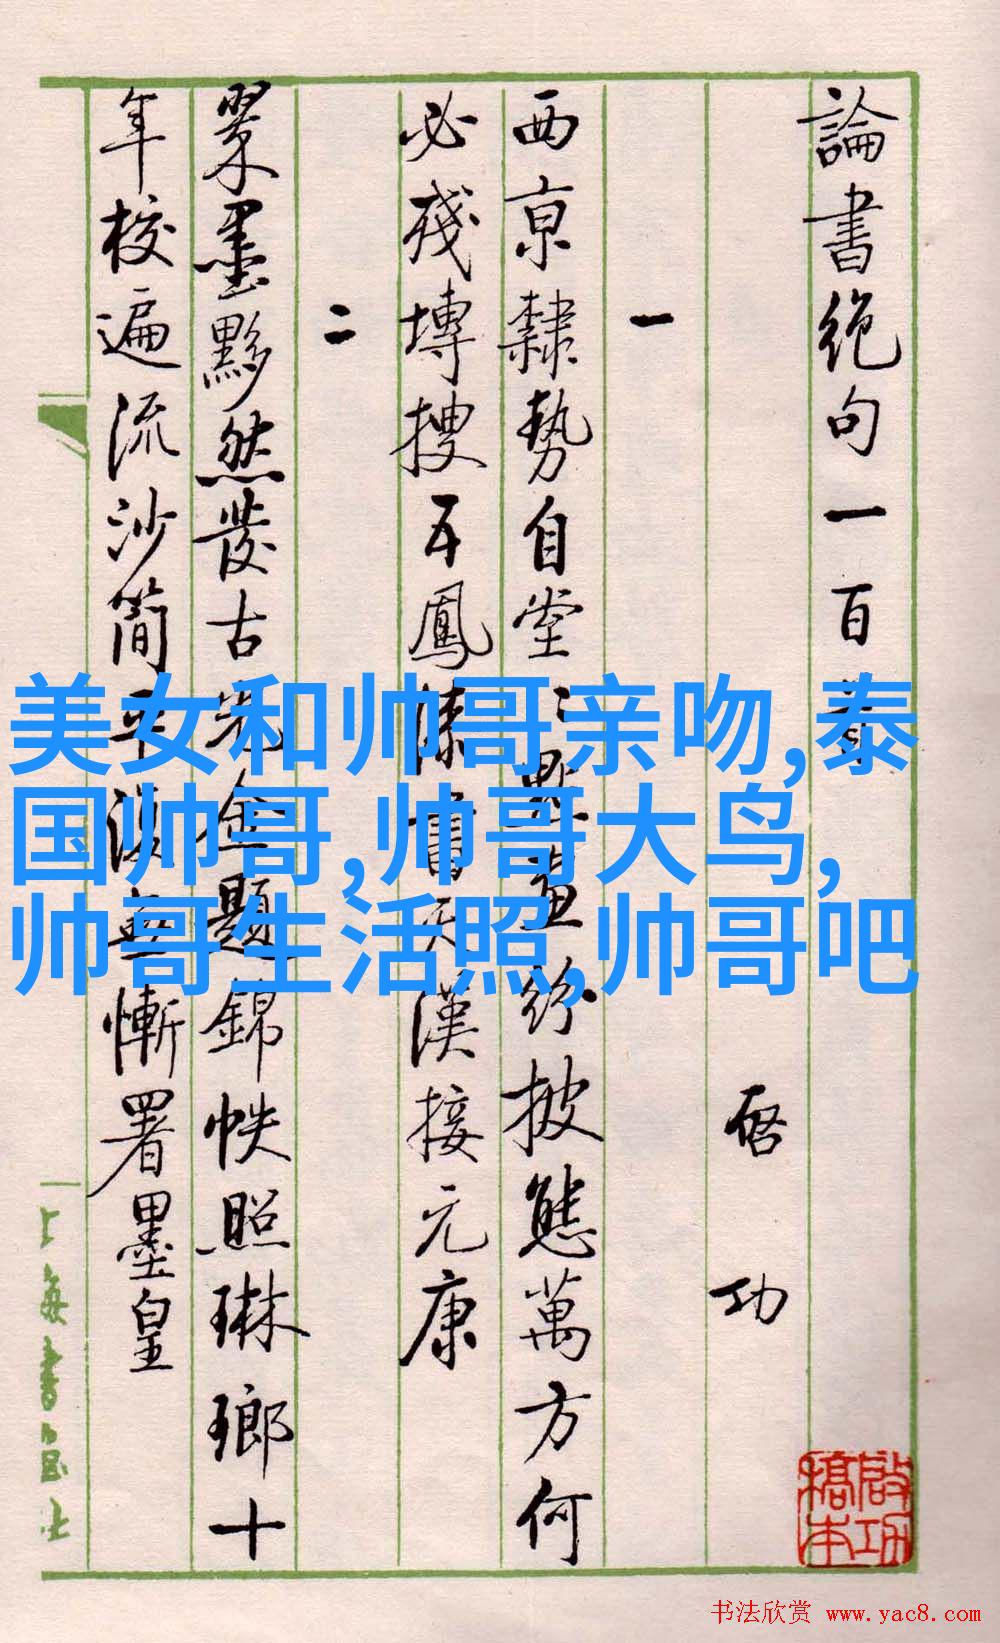 論書絕句一百首
啓功
一
西京隸勢自堂〻點畫紛披態萬方何
必殘塼搜五鳳漆書天漢接元康
二
翠墨黟然發古光金題錦帙照琳瑯十
年校遍流沙簡平復無慚署墨皇
上海書画社
啟功稿本
美女和帅哥亲吻,泰
国帅哥,帅哥大鸟,
帅哥生活照,帅哥吧
书法欣赏 www.yac8.com